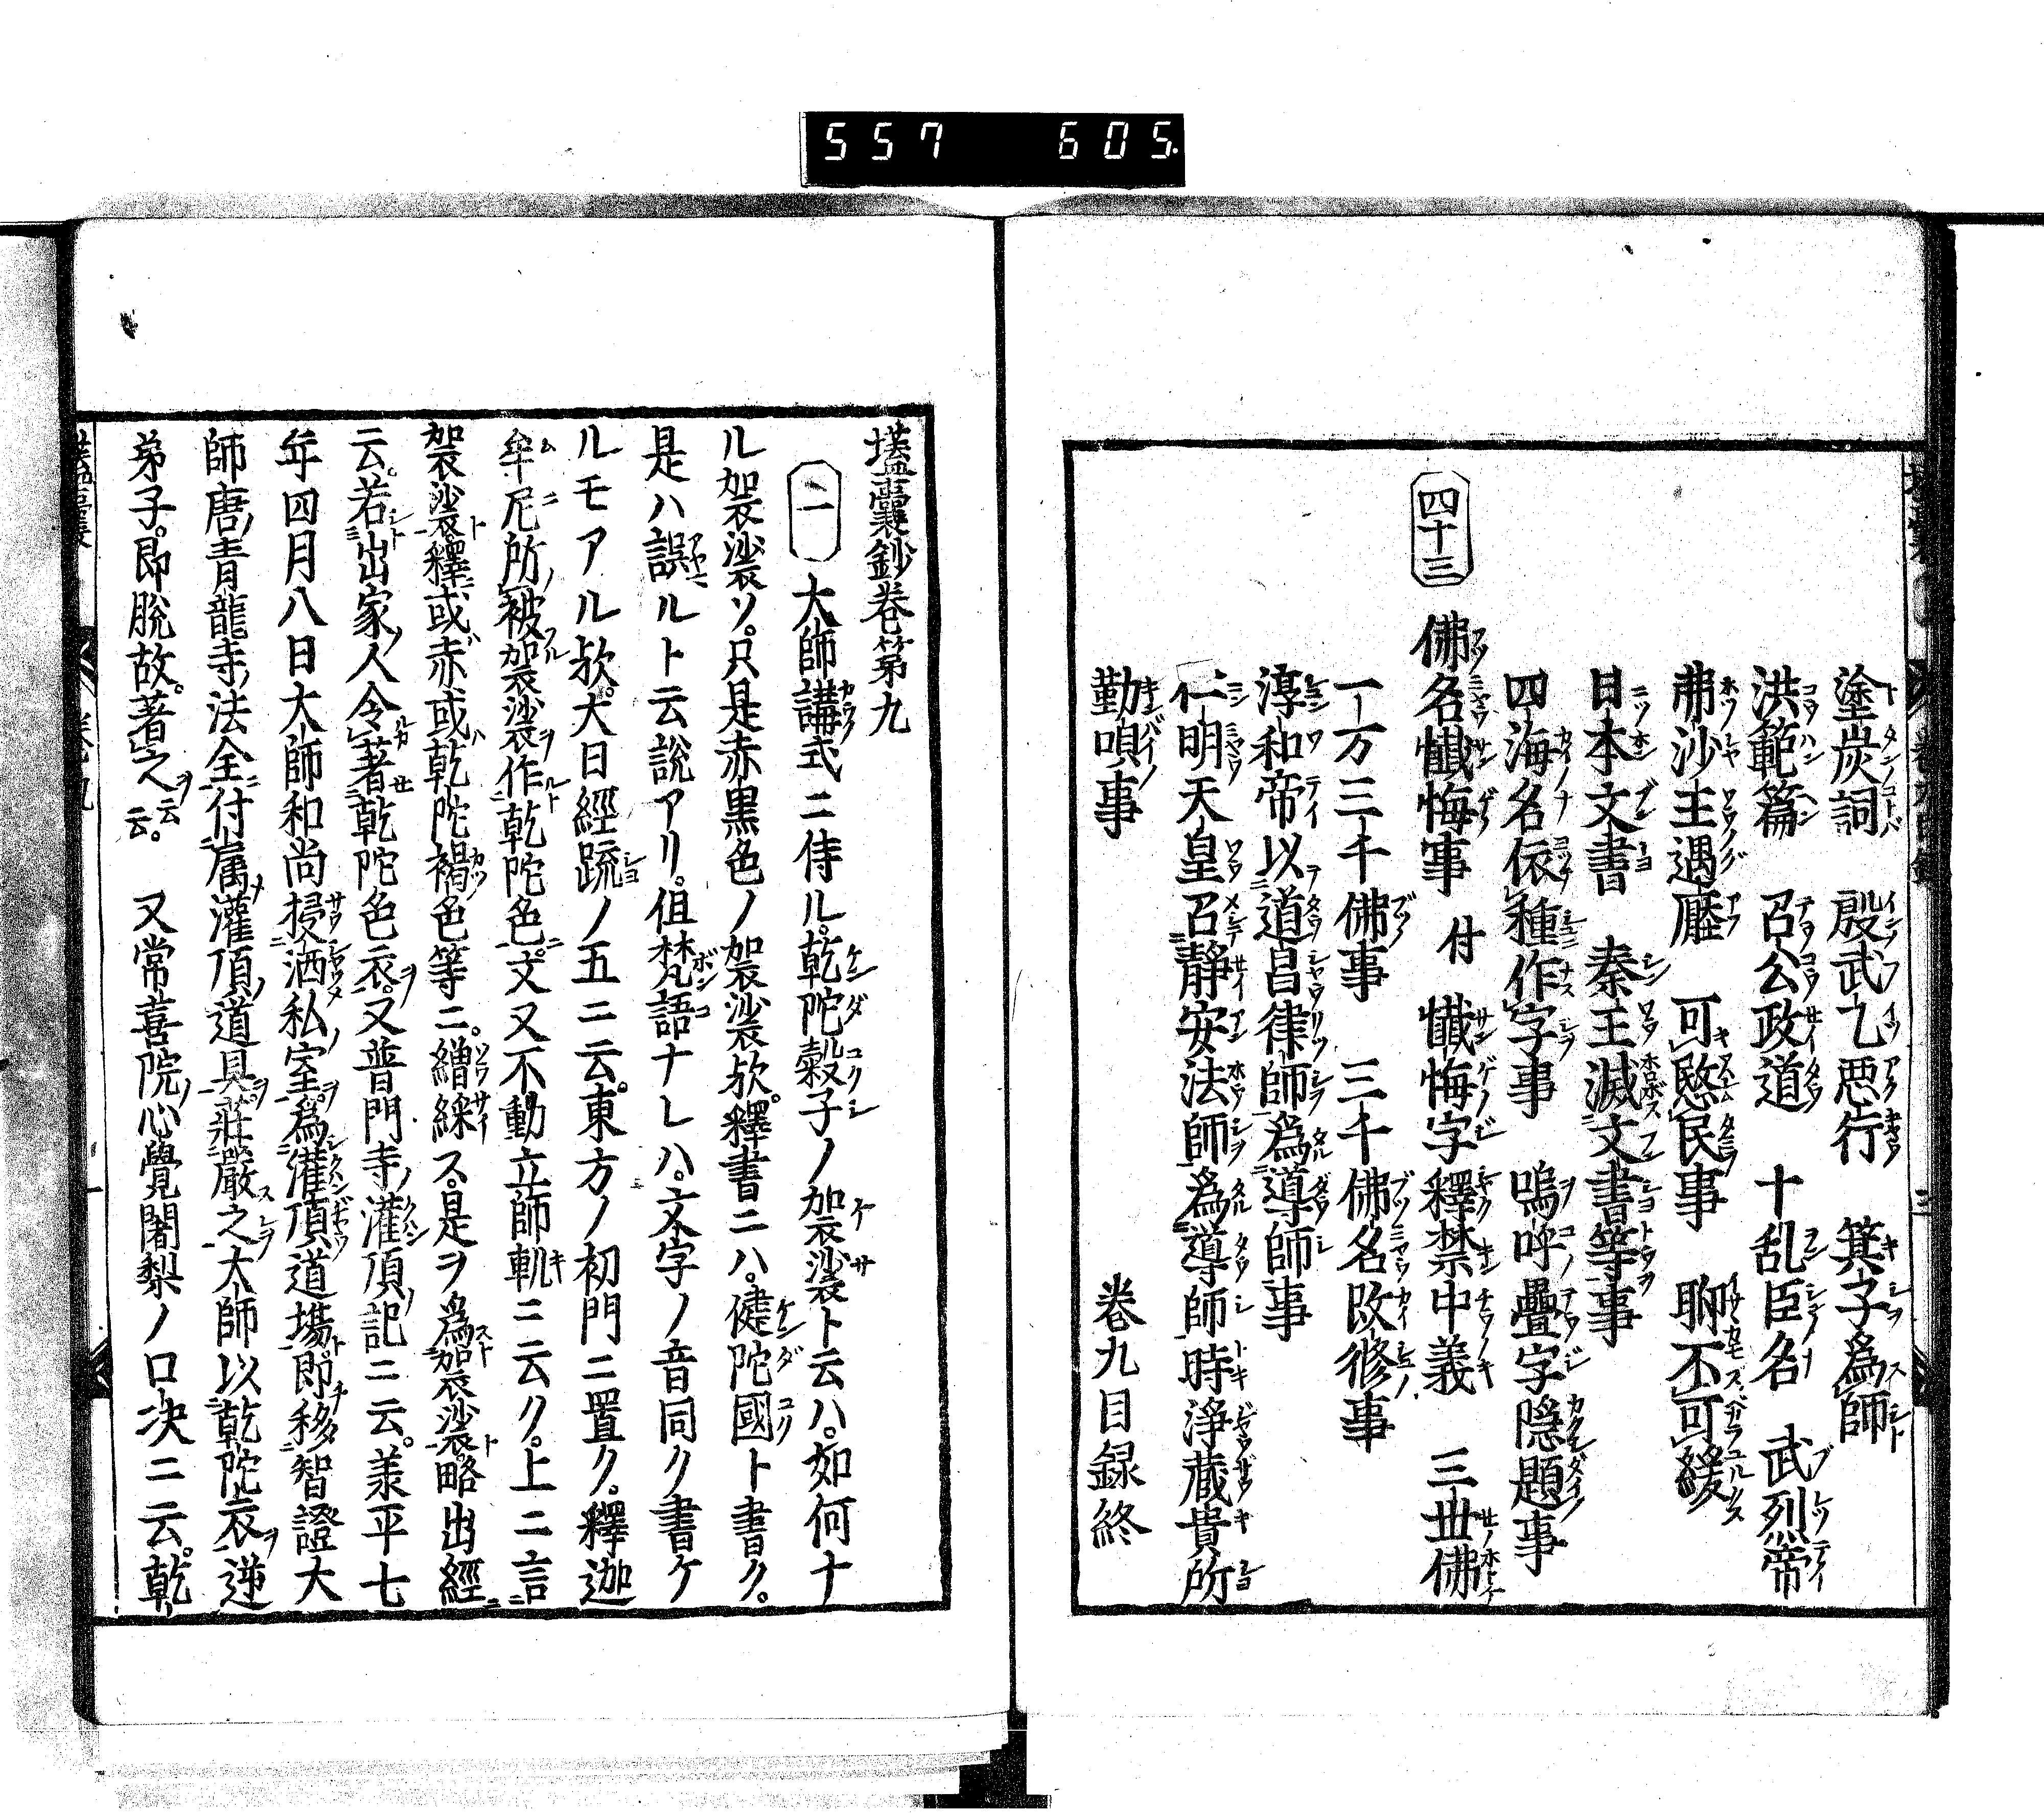 557 605.
塗炭詞 殷武乙悪行 箕子為師
洪範篇 召公政道 十乱臣名 武烈帝
弗沙王遇壓 可愍民事 聊不可緩
日本文書 秦王滅文書等事
四海名依種作字事 嗚呼疊字隠題事
四十三 佛名懺悔事 付 懺悔字釋禁中義 三世佛
一万三千佛事 三千佛名改修事
淳和帝以道昌律師為導師事
仁明天皇召静安法師為導師時浄蔵貴所
勤唄事 巻九目録終
壒囊鈔巻第九
一 大師講式ニ侍ル。乾陀穀子ノ袈裟ト云ハ。如何ナ
ル袈裟ソ。只是赤黒色ノ袈裟欤。釋書ニハ。健陀國ト書ク。
是ハ誤ルト云説アリ。但梵語ナレハ。文字ノ音同ク書ケ
ルモアル欤。大日經疏ノ五ニ云。東方ノ初門ニ置ク。釋迦
牟尼所被袈裟作乾陀色文又不動立師軌ニ云ク。上ニ言
袈裟釋。或赤或乾陀褐色等ニ。繒綵ス。是ヲ為袈裟。略出經
云。若出家人令著乾陀色衣。又普門寺灌頂記ニ云。羕平七
年四月八日大師和尚授洒私室。為灌頂道塲。即移智證大
師唐青龍寺法全付属灌頂道具。莊嚴之。大師以乾陀衣逆
弟子。即脱故。著之云云。 又常喜院心覺闍梨ノ口决ニ云。乾